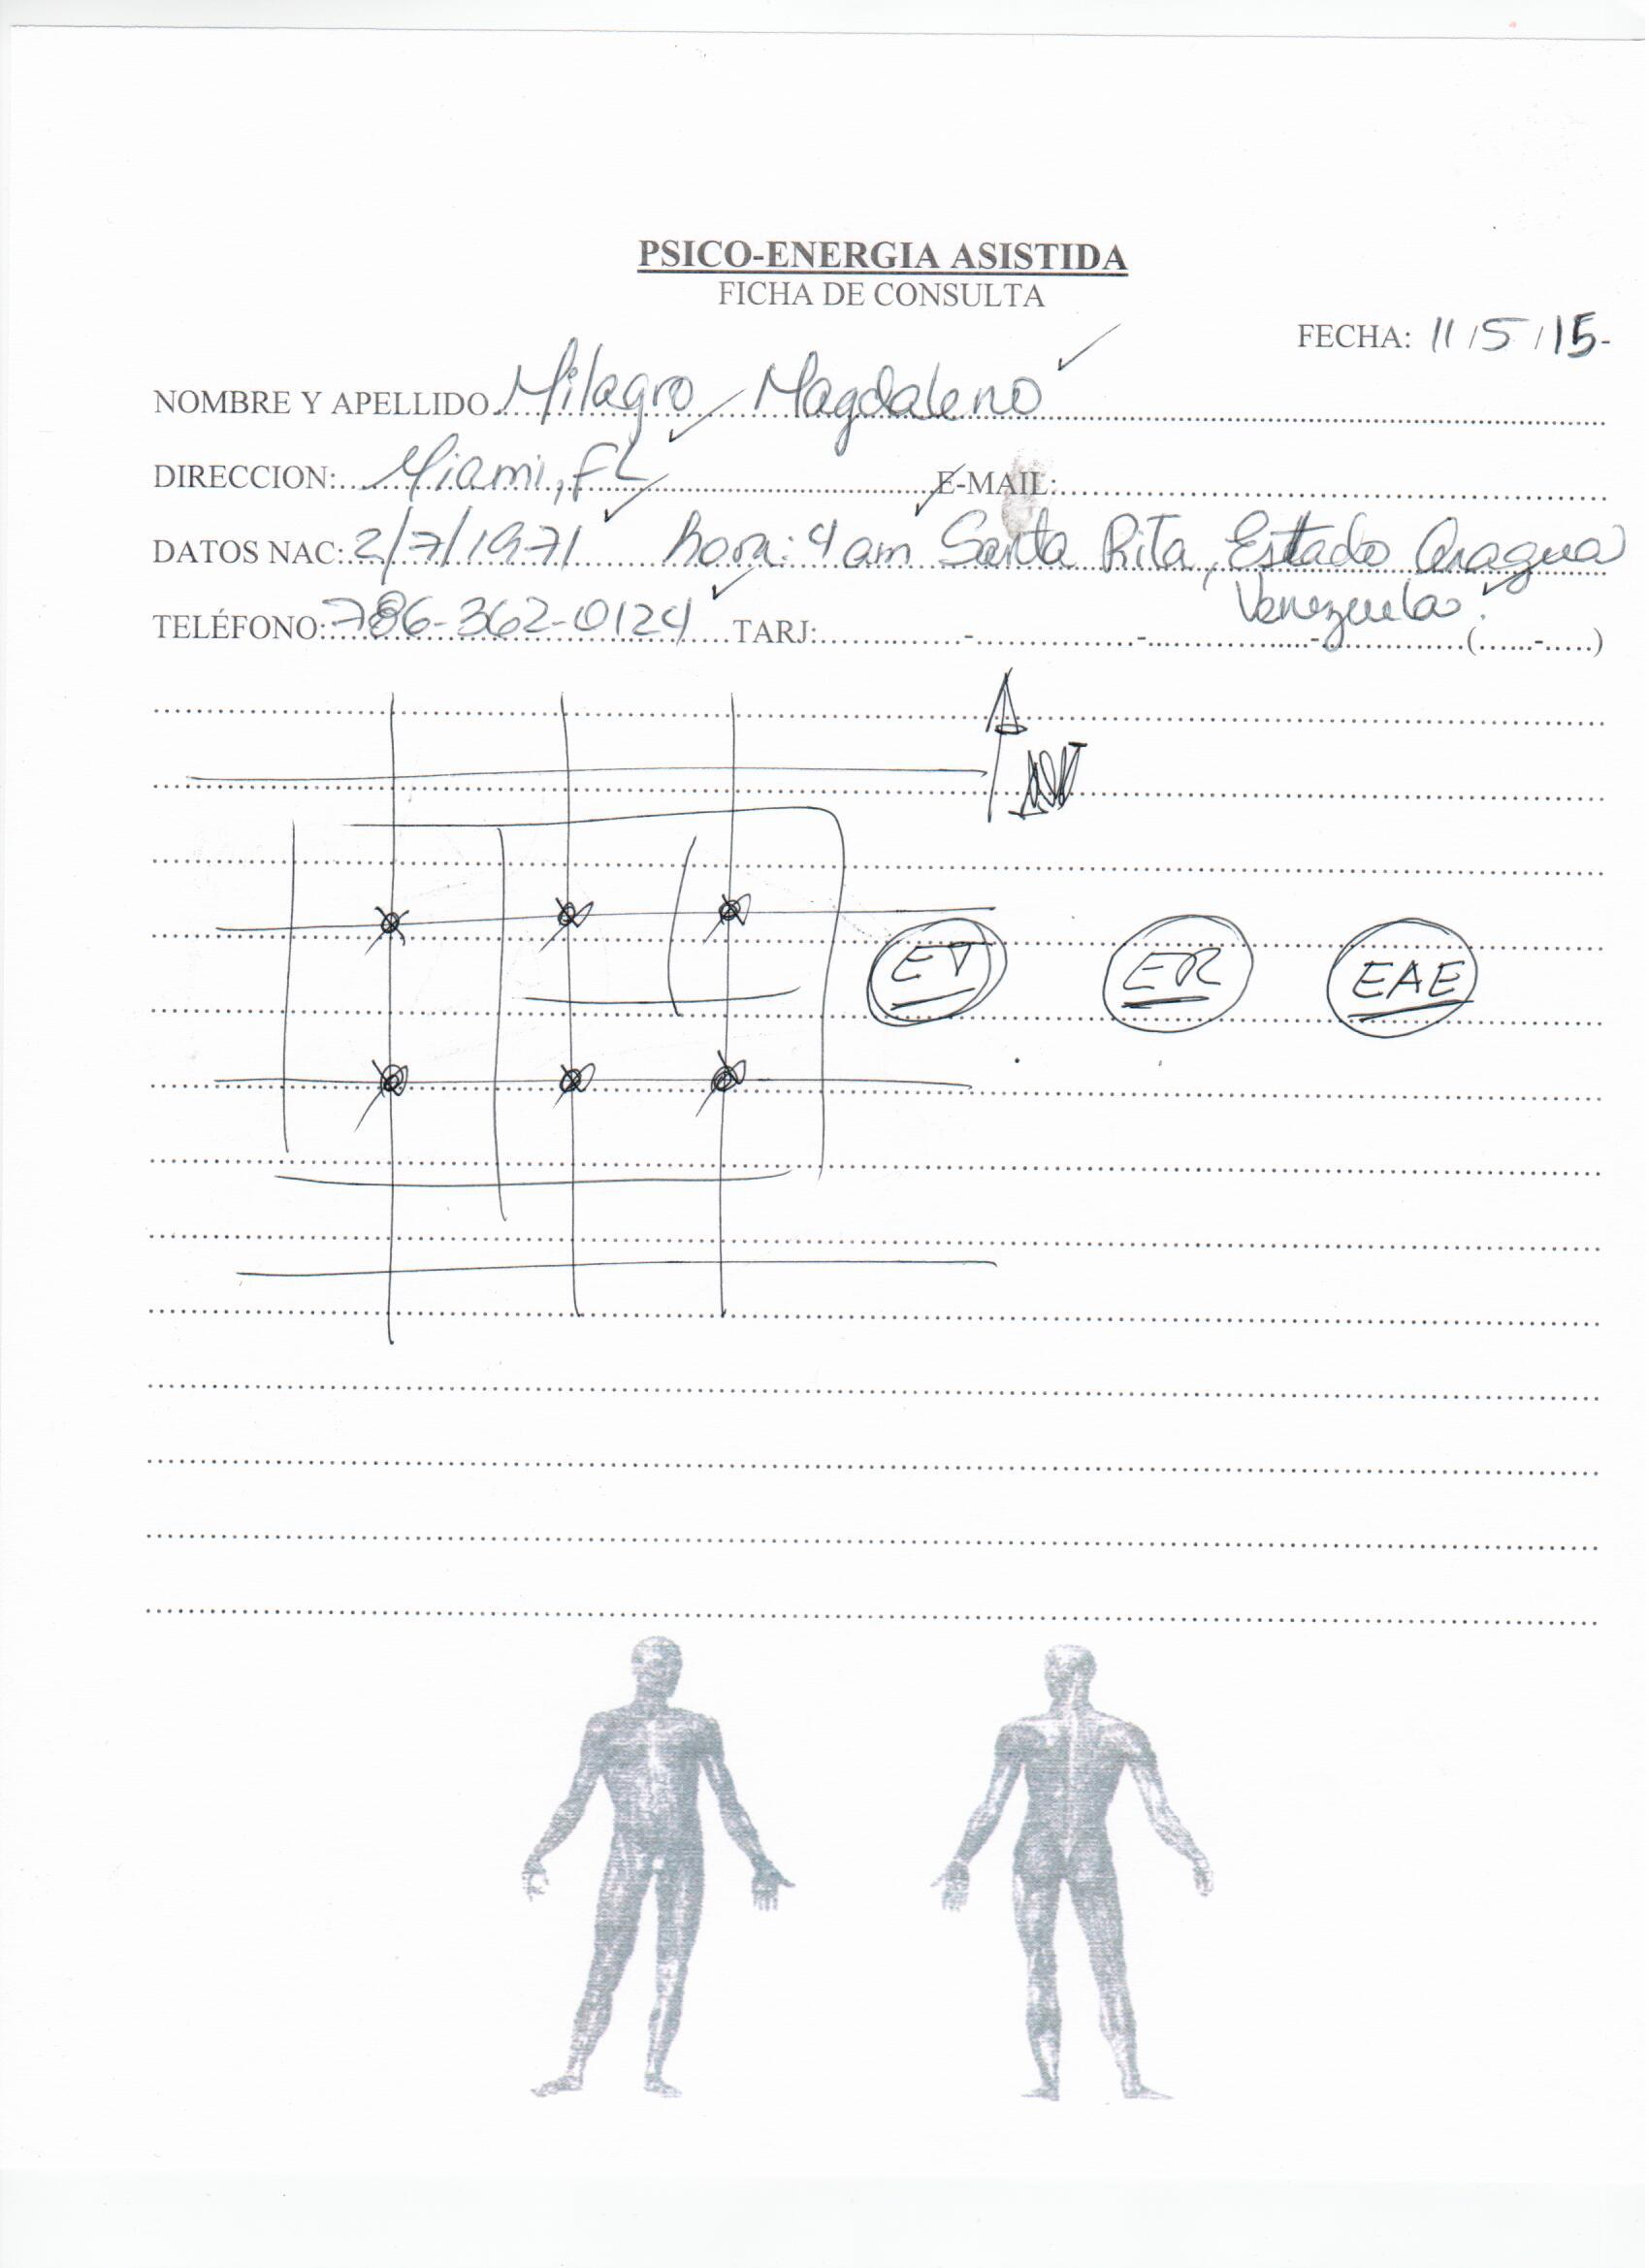 PSICO-ENERGIA ASISTIDA
FICHA DE CONSULTA
FECHA: 11/5/15-
NOMBRE Y APELLIDO Milagro Magdaleno
DIRECCION: Miami, FL E-MAIL:
DATOS NAC: 2/7/1971 hora: 4 am Santa Rita, Estado Aragua
Venezuela.
TELÉFONO: 786-362-0124 TARJ: - - - ( - )
ET ER EAE